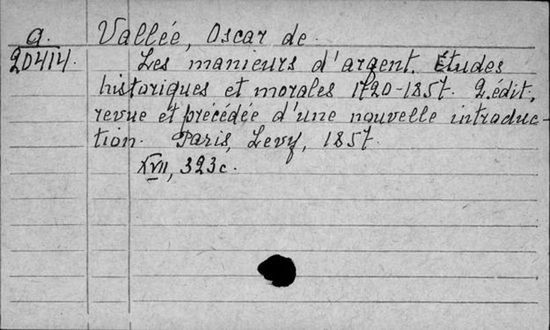 a. Vallée, Oscar de.
20414. Les manieurs d'argent. Études
historiques et morales 1720-1857. 2.édit.
revue et précédée d'une nouvelle introduc-
tion. Paris, Levy, 1857.
XVII, 323c.